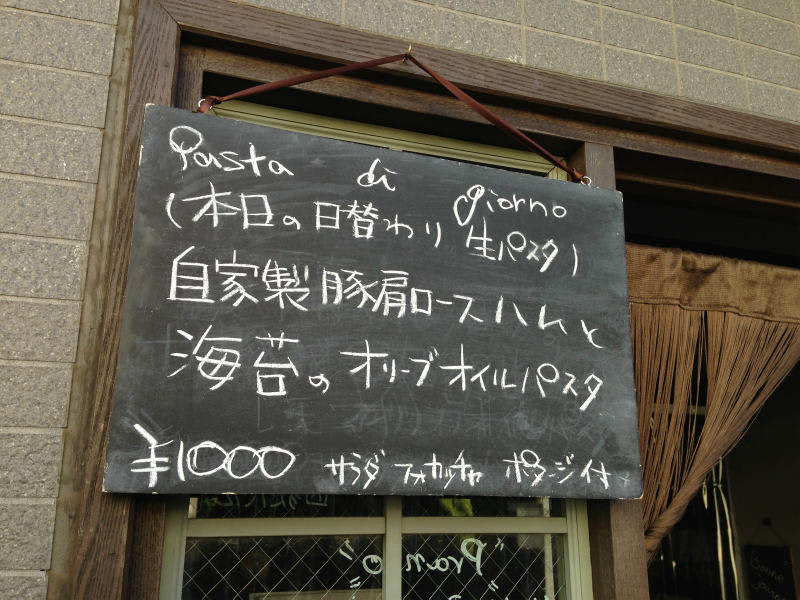 Pasta di giorno
(本日の日替わり 生パスタ)
自家製豚肩ロースハムと
海苔のオリーブオイルパスタ
¥1000 サラダ フォカッチャ ポタージュ付
"Pranzo"
Buono